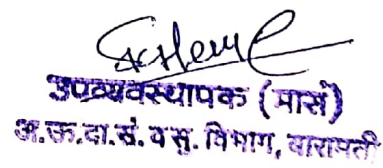 उपव्यवस्थापक (मासं)
अ.ऊ.दा.सं. व सु. विभाग, बारामती